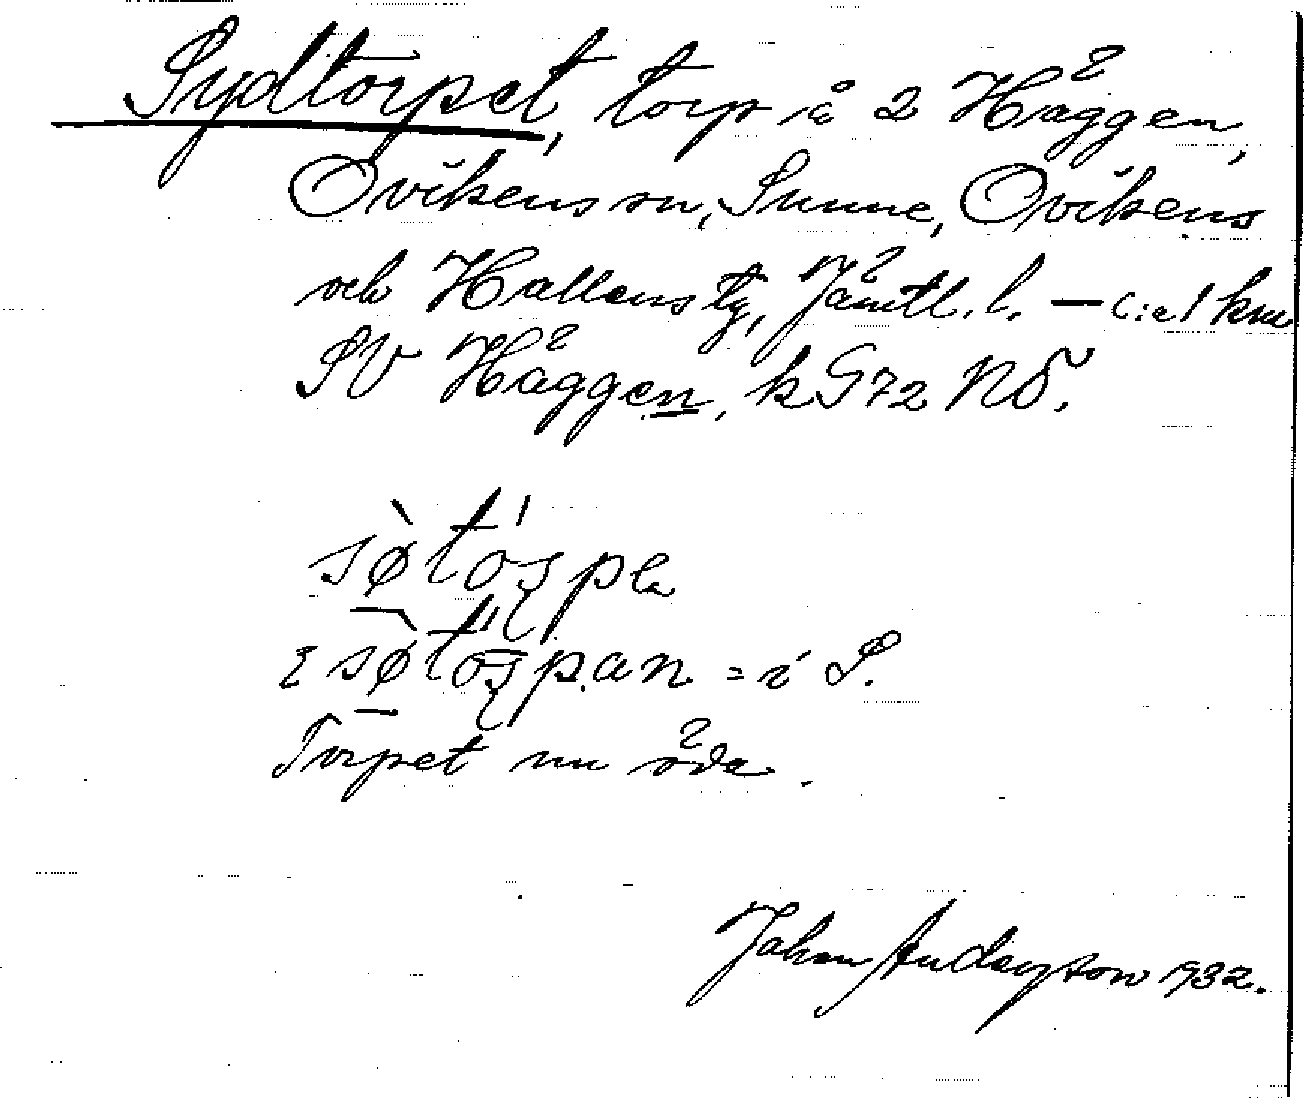 Sydtorpet, torp å 2 Häggen,
Ovikens sn, Sunne, Ovikens
och Hallens tg, Jämtl. l. — c:a 1 km
SV Häggen, k G72 NÖ.
= i S.
Torpet nu öde.
Johan Anderzson 1932.